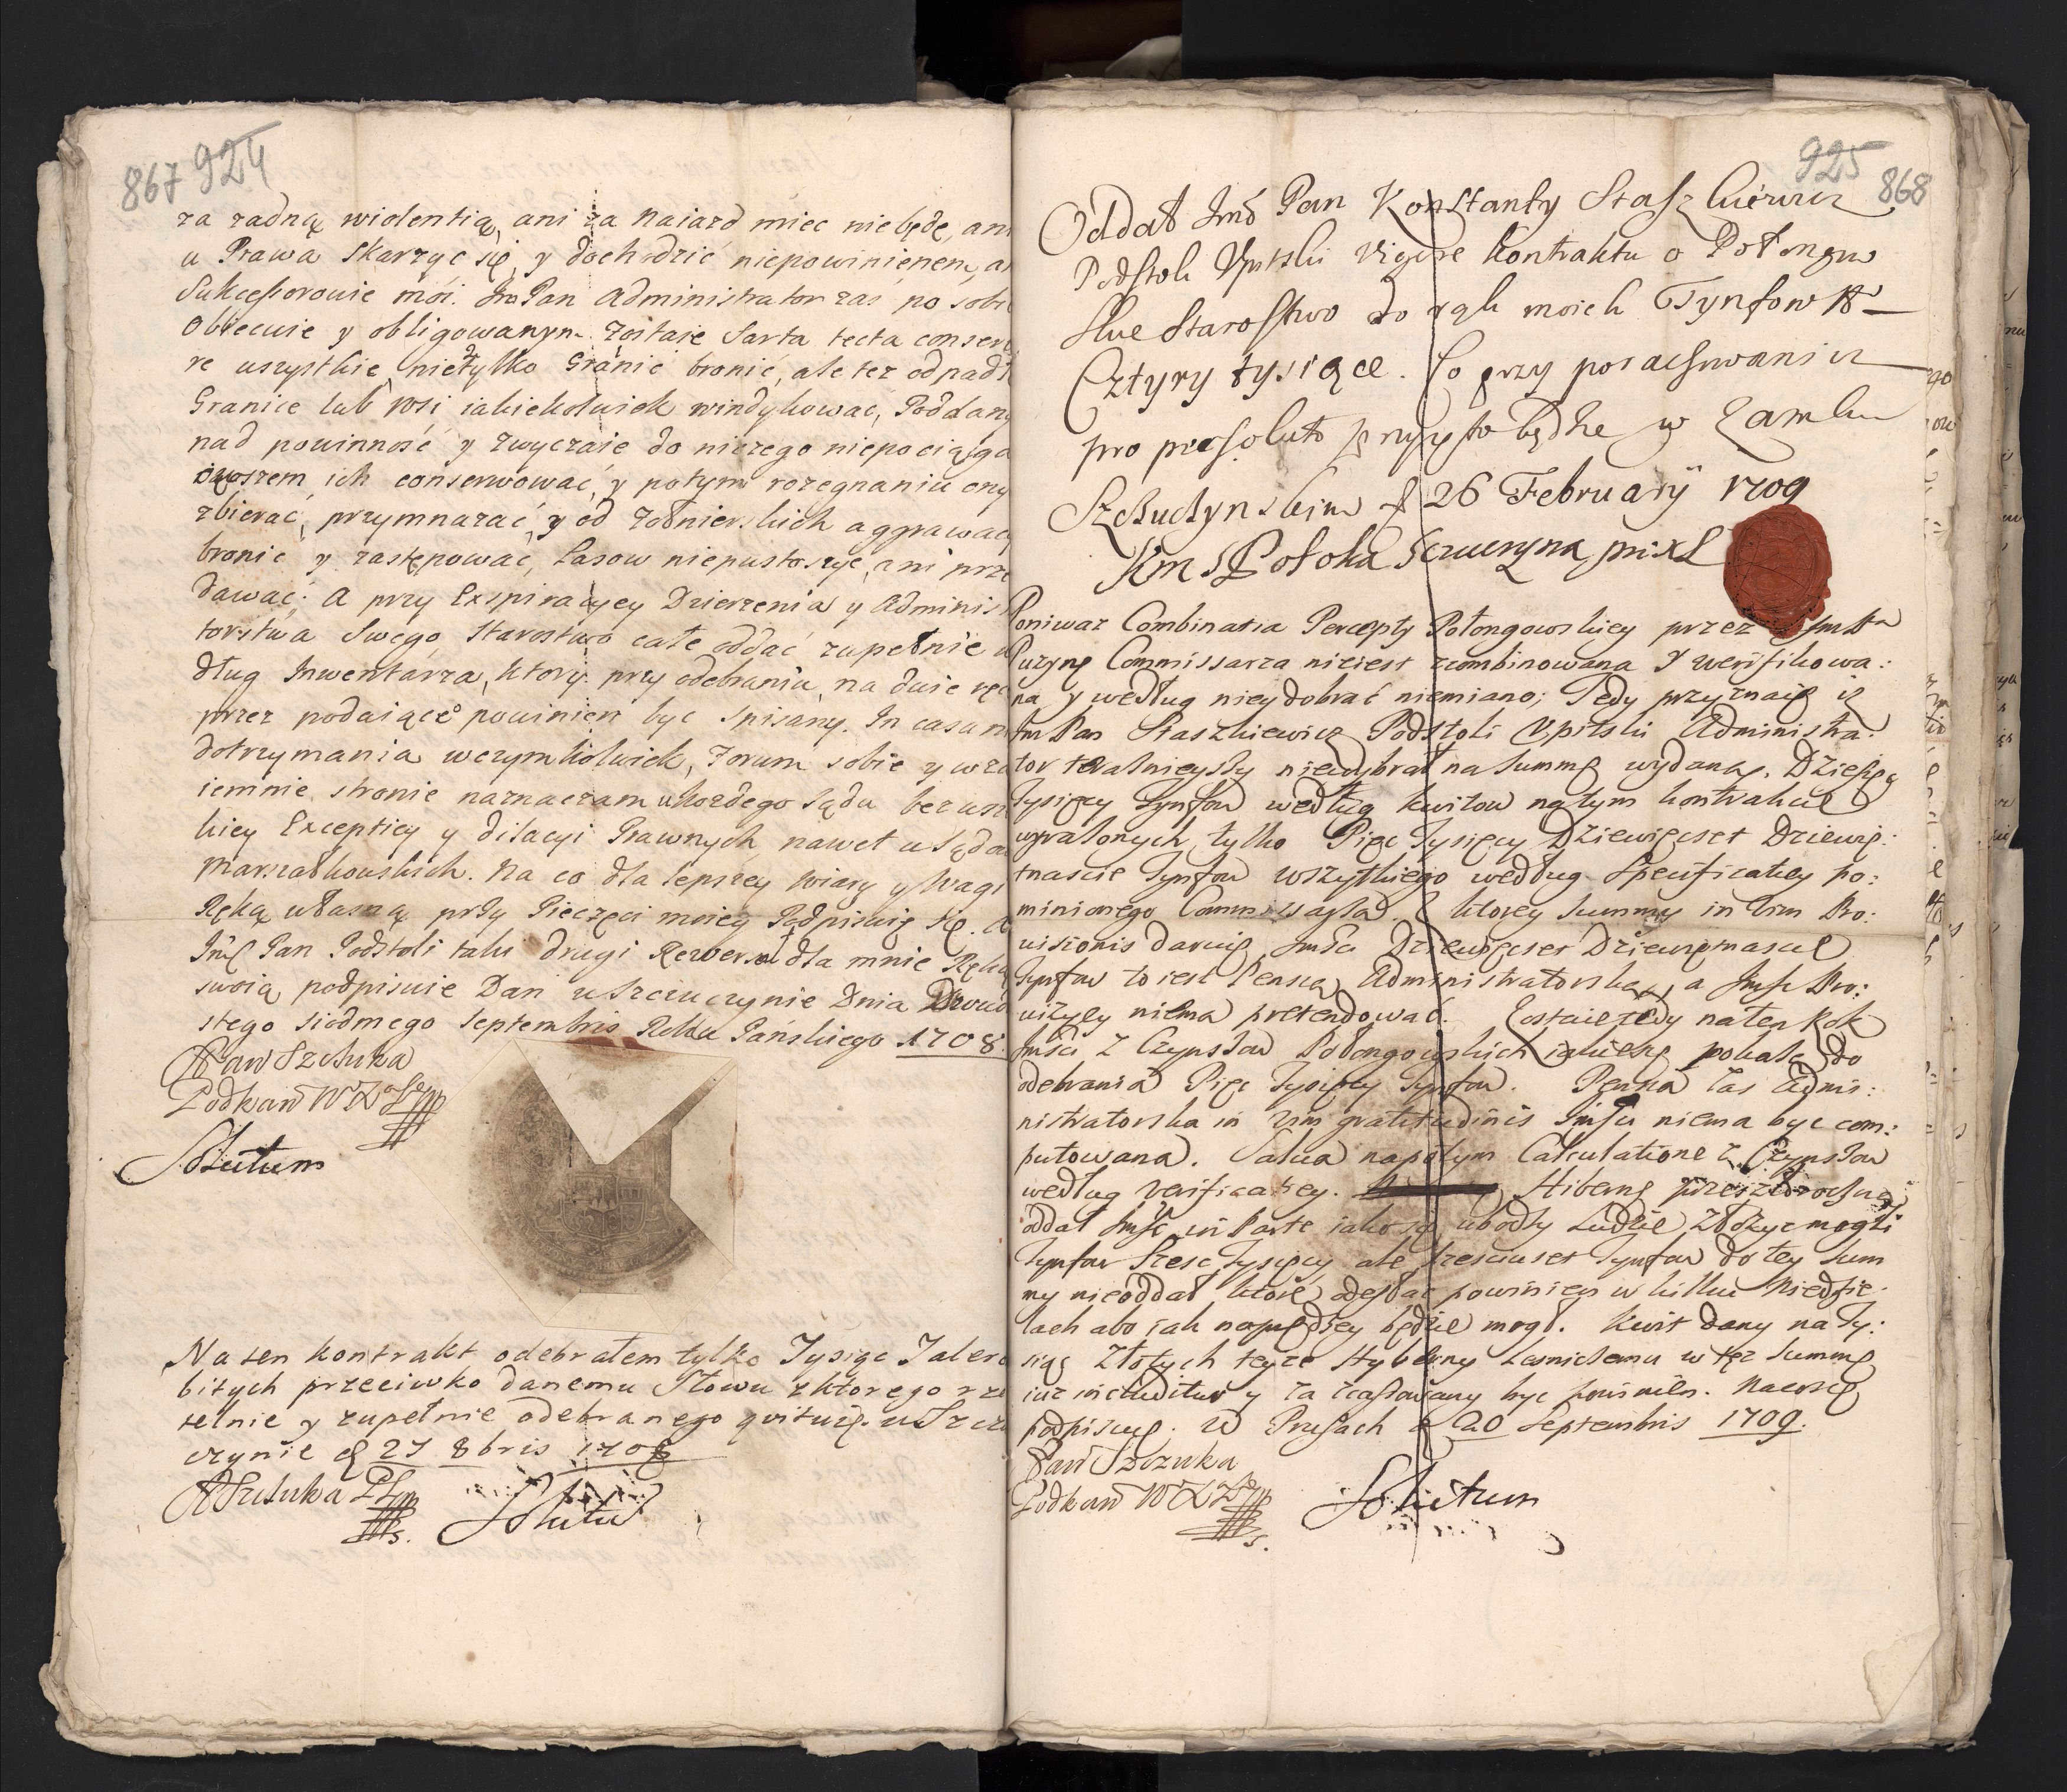 867 924
za zadną wiolentią, ani za naiazd miec niebędę, ani
u Prawa skarzyc się y dochodzić niepowinienem, a
Sukcessorowie moi. Im Pan Administrator zaś po sobi
Obiecuie y obligowanym zostaie Sarta tecta conser
re wszystkie nietylko Granic bronić, ale tez odpad
Granice lub wsi iakiekolwiek windykowac, Poddany
nad powinność y zwyczaie do niczego niepociąga
owszem ich conserwować, y potym rozegnaniu ony
zbierać, przymnazać, y od Zołnierskich aggrawac
bronić y zastępować, Lasow niepustoszyc, ani prze
dawać; A przy Exspiracyey Dzierzenia y Adminis
torstwa Swego Starostwo całe oddać zupełnie w
dług Inwentarza, ktory przy odebraniu na dwie ręc
przez podaiące powinien byc Spisany. In casu n
dotrzymania wczymkolwiek, Forum sobie y wza
iemnie stronie naznaczam u kozdego Sądu bez wsz
kiey Excepticy y dilacyi Prawnych, nawet u Sądo
Marszałkowskich. Na co dla lepszey wiary y wagi
Ręką własną przy Pieczęci moiey Podpisuię się. A
Imę Pan Podstoli taki drugi Rewersał dla mnie Ręką
swoią podpisuie Dan w Szczuczynie Dnia Dwud
stego siodmego Septembris Roku Panskiego 1708.
Szczuka
Podkan W X L
Solutum
Na ten kontrakt odebrałem tylko Tysiąc Talero
bitych przeciwko danemu Słowu z ktorego rze
telnie y zupełnie odebranego qvituię. w Szczu
czynie d 27 8bris 1708
Szczuka
Solutu
925 868
Oddał Imć Pan Konstanty Staszkiewicz
Podstoli Upitski vigore kontraktu o Połongow
skie Starostwo do rąk moich Tynfow N°
Cztyry tysiące. Co przy porachowaniu
pro persoluto przyięto będzie w Zamku
Szczuczynskim d 26 February 1709
Potoka Szczuczyna
Poniwaz Combinatia Percepty Połongowskiey przez Im
Puzynę Commissarza nieiest zcombinowana y werifikowa:
na y według niey dobrać niemiano; Tedy przyznaię iz
Im Pan Staszkiewicz Podstoli Upitski Administra:
tor teraznieyszy niewybrał na Summę wydaną, Dziesięc
Tysięcy Tynfow według kwitow na tym kontrakcie
wyrazonych, tylko Pięc Tysięcy Dziewięcset Dziewię:
tnascie Tynfow wszytkiego według Specificatiey po:
minionego Commissarza. Z ktorey Summy in vim Pro:
uisionis daruię Imści Dziewięcset Dziewiętnascie
Tynfow to iest Pensią Administratorską, a Imść Pro:
uizyey niema pretendować. Zostaie tedy na ten Rok
Imści z Czynszow Połongowskich iakiesz pokalę do
odebrania Pięc Tysięcy Tynfow. Pensia zas Admi:
nistratorska in vim gratitudinis Imści niema byc com:
putowana. Salva napotym Calculatione z Czynszow
według verificatiey. Hibernę przeszłoroczną
oddał Imść in Parte iako są ubodzy Ludzie, złożyc mogli
Tynfow Szesc Tysięcy ale Szescuset Tynfow do tey Sum
my nieoddał ktore odesłac powinien w kilku Niedzie:
lach abo iak nayprędzey będzie mogł. Kwit dany na Ty:
siąc Złotych teyze Hyberny Lesnickemu w tęz Summę
iuz includitur y za skassowany byc powinien. Na co się
podpisuię. w Prusach d 20 Septembris 1709.
Szczuka
Podkan W X L
Solutum